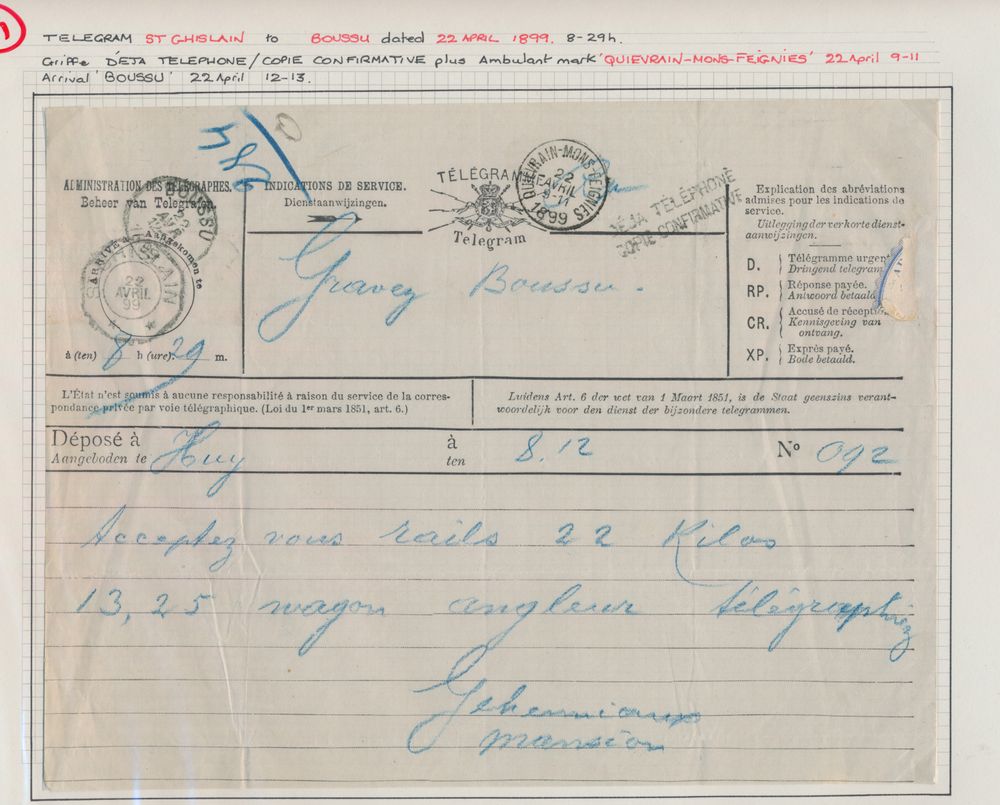 1
TELEGRAM ST GHISLAIN to BOUSSU dated 22 APRIL 1899. 8-29h.
Griffe DÉJA TELEPHONE/COPIE CONFIRMATIVE plus Ambulant mark 'QUIEVRAIN-MONS-FEIGNIES' 22 April 9-11
Arrival 'BOUSSU' 22 April 12-13.
ADMINISTRATION DES TÉLÉGRAPHES.
Beheer van Telegrafen.
BOUSSU
ARRIVÉ À
Aangekomen te
22
AVRIL
99
à (ten) 8 h (ure). 29 m.
INDICATIONS DE SERVICE.
Dienstaanwijzingen.
TÉLÉGRAMME
Telegram
QUIÉVRAIN-MONS-FEIGNIES
22
AVRIL
9-11
1899
DÉJÀ TÉLÉPHONÉ
COPIE CONFIRMATIVE
Gravez Boussu.
Explication des abréviations
admises pour les indications de
service.
Uitlegging der verkorte dienst-
aanwijzingen.
D. Télégramme urgent
Dringend telegram
RP. Réponse payée.
Antwoord betaald
CR. Accusé de réception.
Kennisgeving van
ontvang.
XP. Exprès payé.
Bode betaald.
L'État n'est soumis à aucune responsabilité à raison du service de la corres-
pondance privée par voie télégraphique. (Loi du 1er mars 1851, art. 6.)
Luidens Art. 6 der wet van 1 Maart 1851, is de Staat geenszins verant-
woordelijk voor den dienst der bijzondere telegrammen.
Déposé à Huy à 8.12 No 092
Aangeboden te ten
Acceptez vous rails 22 Kilos
13,25 wagon angleur télégraphiez
mansion